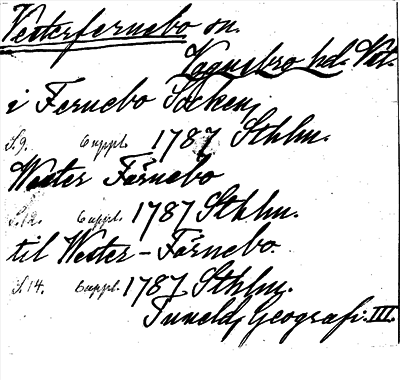 Vesterfernebo sn.
Vagnsbro hd. Vst.
i Fernebo Socken,
S. 9. 6 uppl. 1787 Sthlm.
Wester Fernebo
S. 12. 6 uppl. 1787 Sthlm.
til Wester-Färnebo.
S. 14. 6 uppl. 1787 Sthlm.
Tunelds Geografi. III.